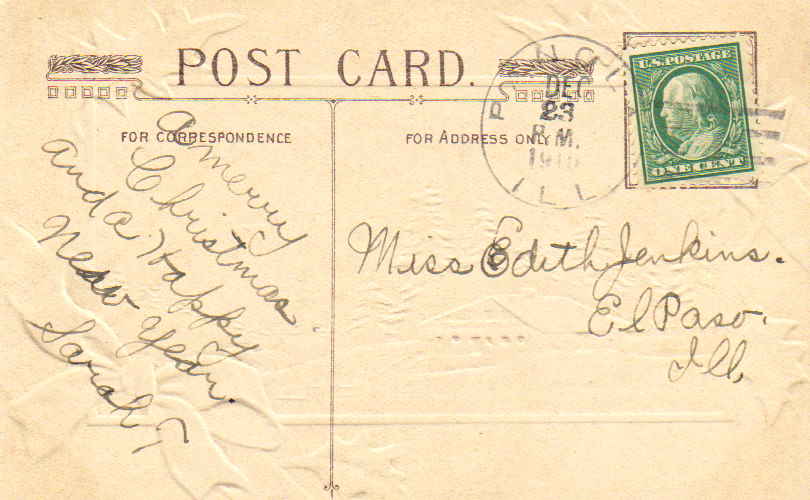 POST CARD.
FOR CORRESPONDENCE
FOR ADDRESS ONLY
DEC
23
P.M.
ILL
U.S. POSTAGE
ONE CENT
A Merry
Christmas
and a Happy
New Year.
Sarah T
Miss Edith Jenkins.
El Paso.
Ill.